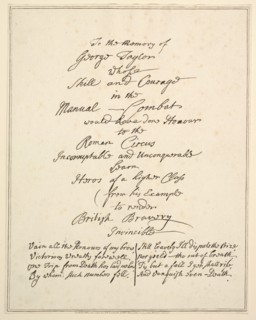 To the Memory of
George Taylor
Whose
Skill and Courage
in the
Manual Combat
would have done Honour
to the
Roman Circus
Incorruptable and Unconquerable
Learn
Heros of a higher Class
(from his Example
to render
British Bravery
Invincible
Vain all the Honours of my brow
Victorious
one Trip from Death has laid
By whom such numbers fell.
Still bravely I'll dispute the Prize
nor yield the out of breath
Tis but a fall I yet
And vanquish even Death.